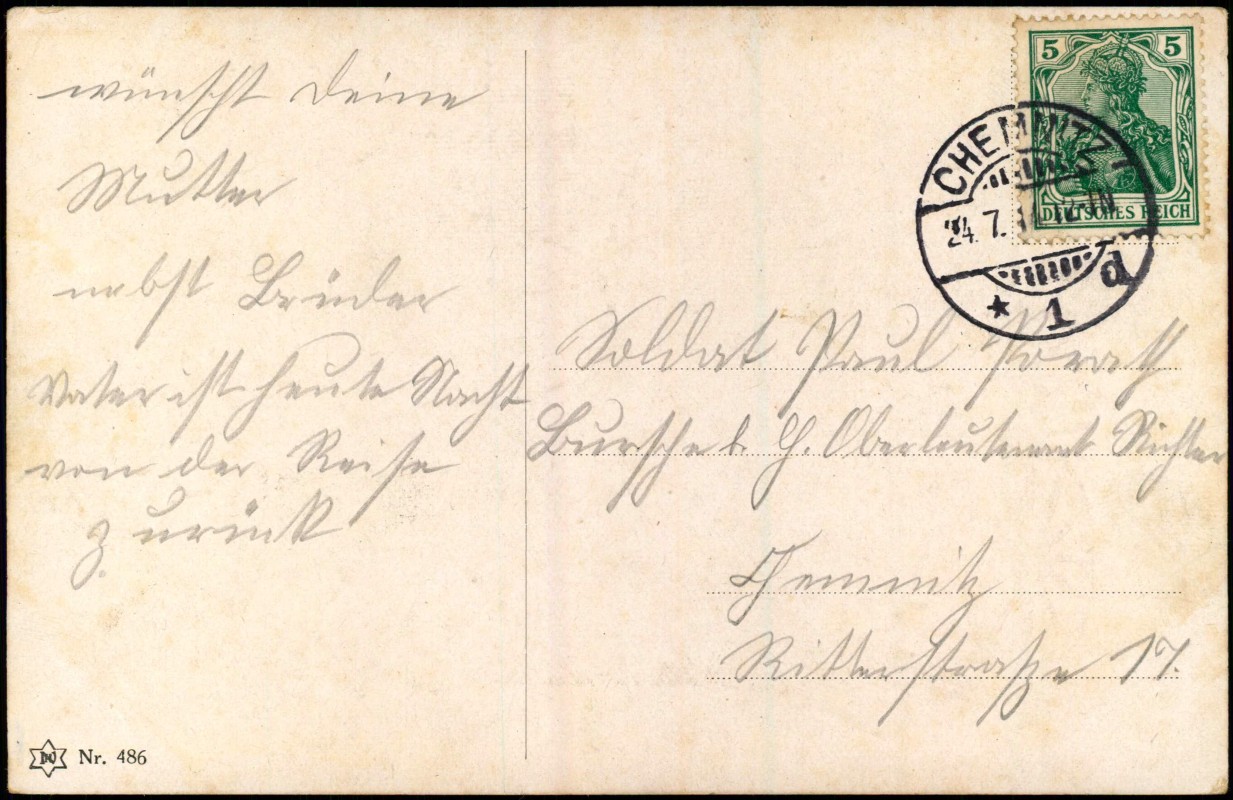 wünscht Deine
Mutter
nebst Brüder
Vater ist heute Nacht
von der Reise
zurück
5 5
DEUTSCHES REICH
CHEMNITZ
24. 7. 12-1N
* 1 d
Soldat Paul
Bursche b. H. Oberleutenant Richter
Chemnitz
Ritterstraße 17.
Nr. 486